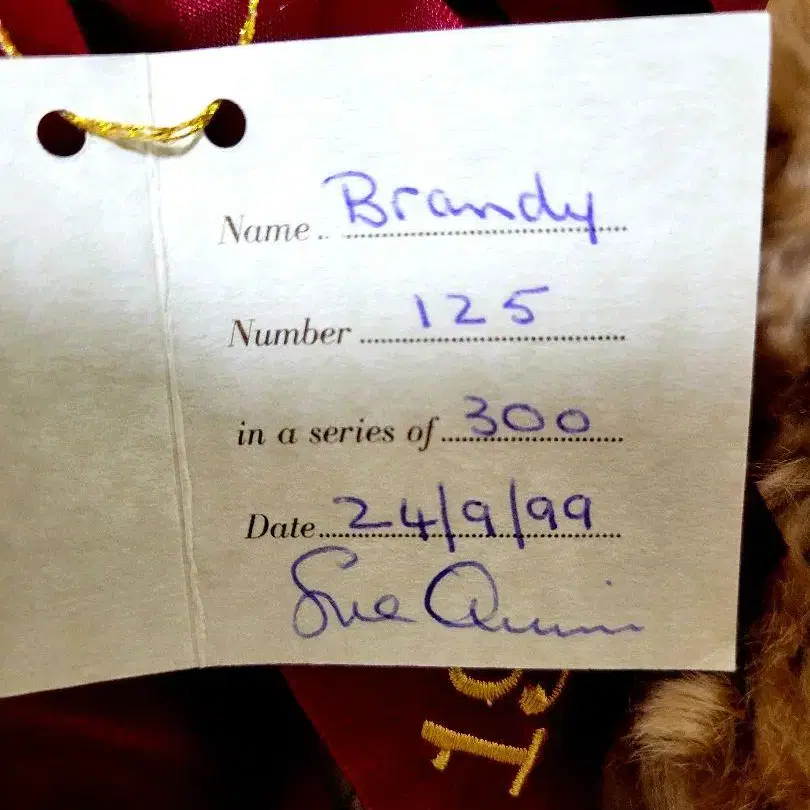 Name .. Brandy
Number 125
in a series of 300
Date 24/9/99
Sue Quinn
19